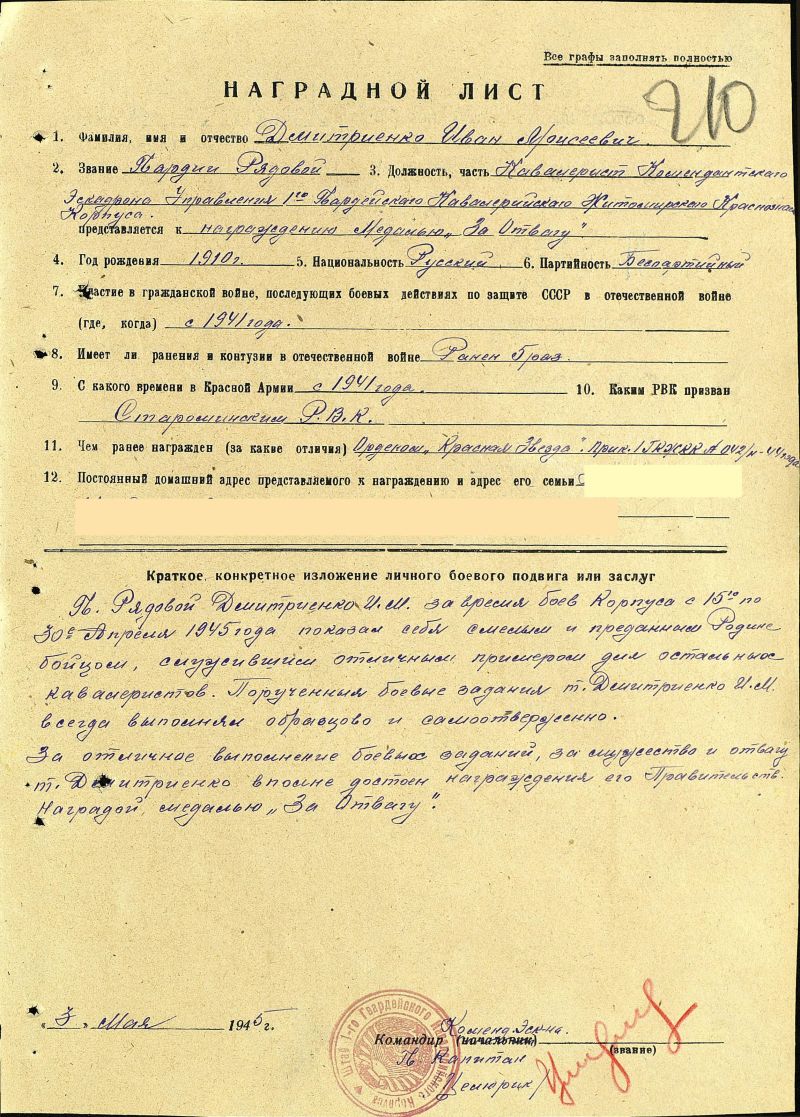 Все графы заполнять полностью
НАГРАДНОЙ ЛИСТ
210
1. Фамилия, имя и отчество Дмитриенко Иван Моисеевич
2. Звание Гвардии Рядовой 3. Должность, часть Кавалерист Комендантского
Эскадрона Управления 1го Гвардейского Кавалерийского Житомирского Краснознам
Корпуса.
представляется к награждению Медалью „За Отвагу"
4. Год рождения 1910г. 5. Национальность Русский 6. Партийность Беспартийный
7. Участие в гражданской войне, последующих боевых действиях по защите СССР в отечественной войне
(где, когда) с 1941 года.
8. Имеет ли ранения и контузии в отечественной войне Ранен 5 раз.
9. С какого времени в Красной Армии с 1941 года. 10. Каким РВК призван
Староминским Р.В.К.
11. Чем ранее награжден (за какие отличия) Орденом „Красная Звезда". Прик. 1 ГКЖКК № 042/н-44 года
12. Постоянный домашний адрес представляемого к награждению и адрес его семьи
Краткое, конкретное изложение личного боевого подвига или заслуг
Гв. Рядовой Дмитриенко И.М. за время боев Корпуса с 15го по
30е Апреля 1945 года показал себя смелым и преданным Родине
бойцом, служившим отличным примером для остальных
кавалеристов. Порученныя боевые задания т. Дмитриенко И.М.
всегда выполнял образцово и самоотверженно.
За отличное выполнение боевых заданий, за мужество и отвагу
т. Дмитриенко вполне достоен награждения его Правительств.
Наградой, медалью „За Отвагу".
„3" Мая 1945г.
Коменд. Эск-на.
Командир (начальник)
(звание)
Гв Капитан
Штаб 1-го Гвардейского Корпуса